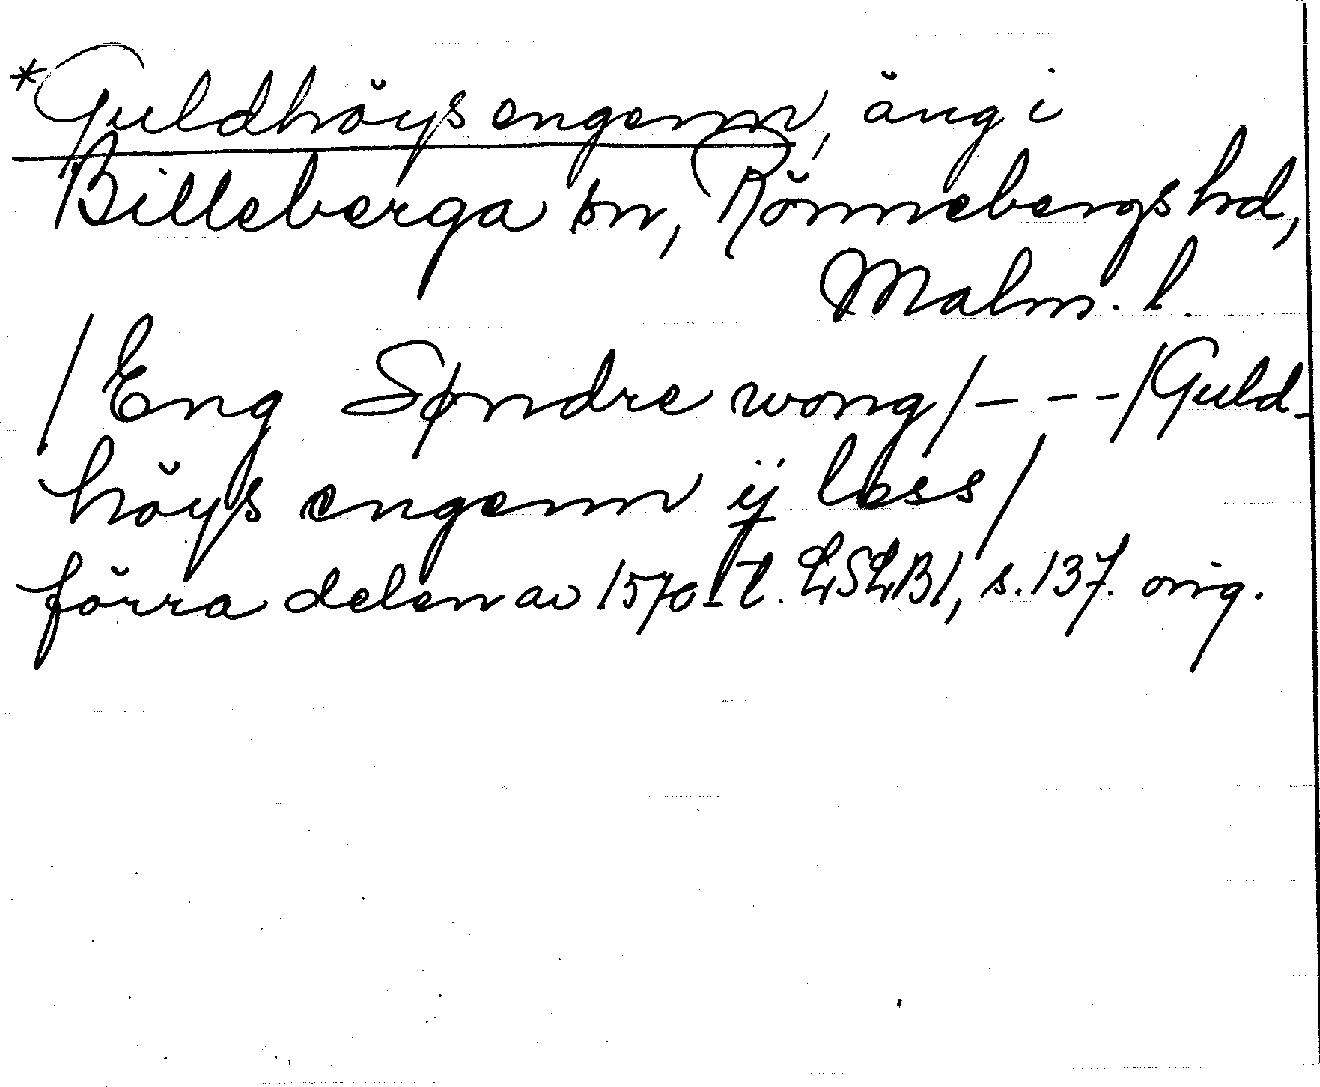 *Guldhöys engenn, äng i
Billeberga sn, Rönnebergs hd,
Malm. l.
/Eng Søndre wong/ - - - /Guld-
höys engenn ij less/
förra delen av 1570-t. LSLB1, s. 137. orig.